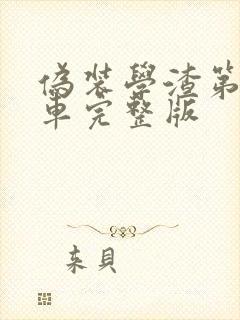 偽裝學渣第
車完整版
来貝